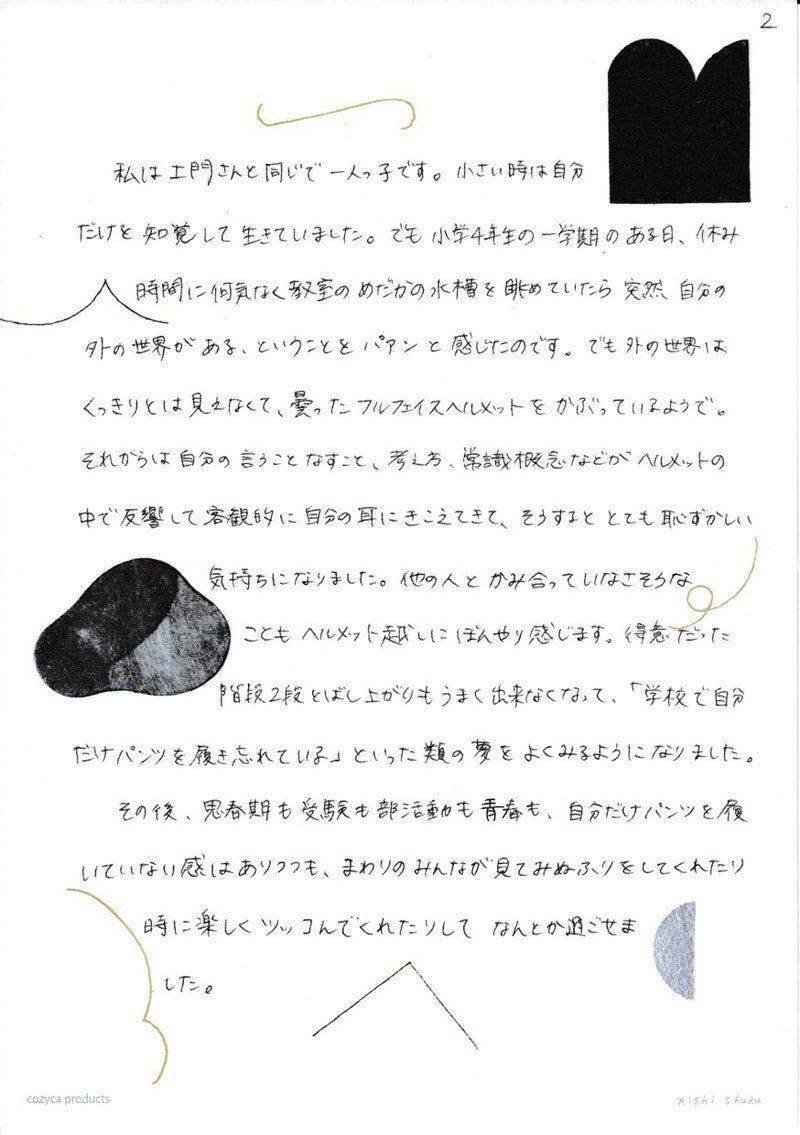 2
私は土門さんと同じで一人っ子です。小さい時は自分
だけを知覚して生きていました。でも小学4年生の一学期のある日、休み
時間に何気なく教室のめだかの水槽を眺めていたら突然、自分の
外の世界がある、ということをパアンと感じたのです。でも外の世界は
くっきりとは見えなくて、曇ったフルフェイスヘルメットをかぶっているようで。
それからは自分の言うことなすこと、考え方、常識概念などがヘルメットの
中で反響して客観的に自分の耳にきこえてきて、そうするととても恥ずかしい
気持ちになりました。他の人とかみ合っていなさそうな
こともヘルメット越しにぼんやり感じます。得意だった
階段2段とばし上がりもうまく出来なくなって、「学校で自分
だけパンツを履き忘れている」といった類の夢をよくみるようになりました。
その後、思春期も受験も部活動も青春も、自分だけパンツを履
いていない感はありつつも、まわりのみんなが見てみぬふりをしてくれたり
時に楽しくツッコんでくれたりしてなんとか過ごせま
した。
cozyca products
nishi shuku